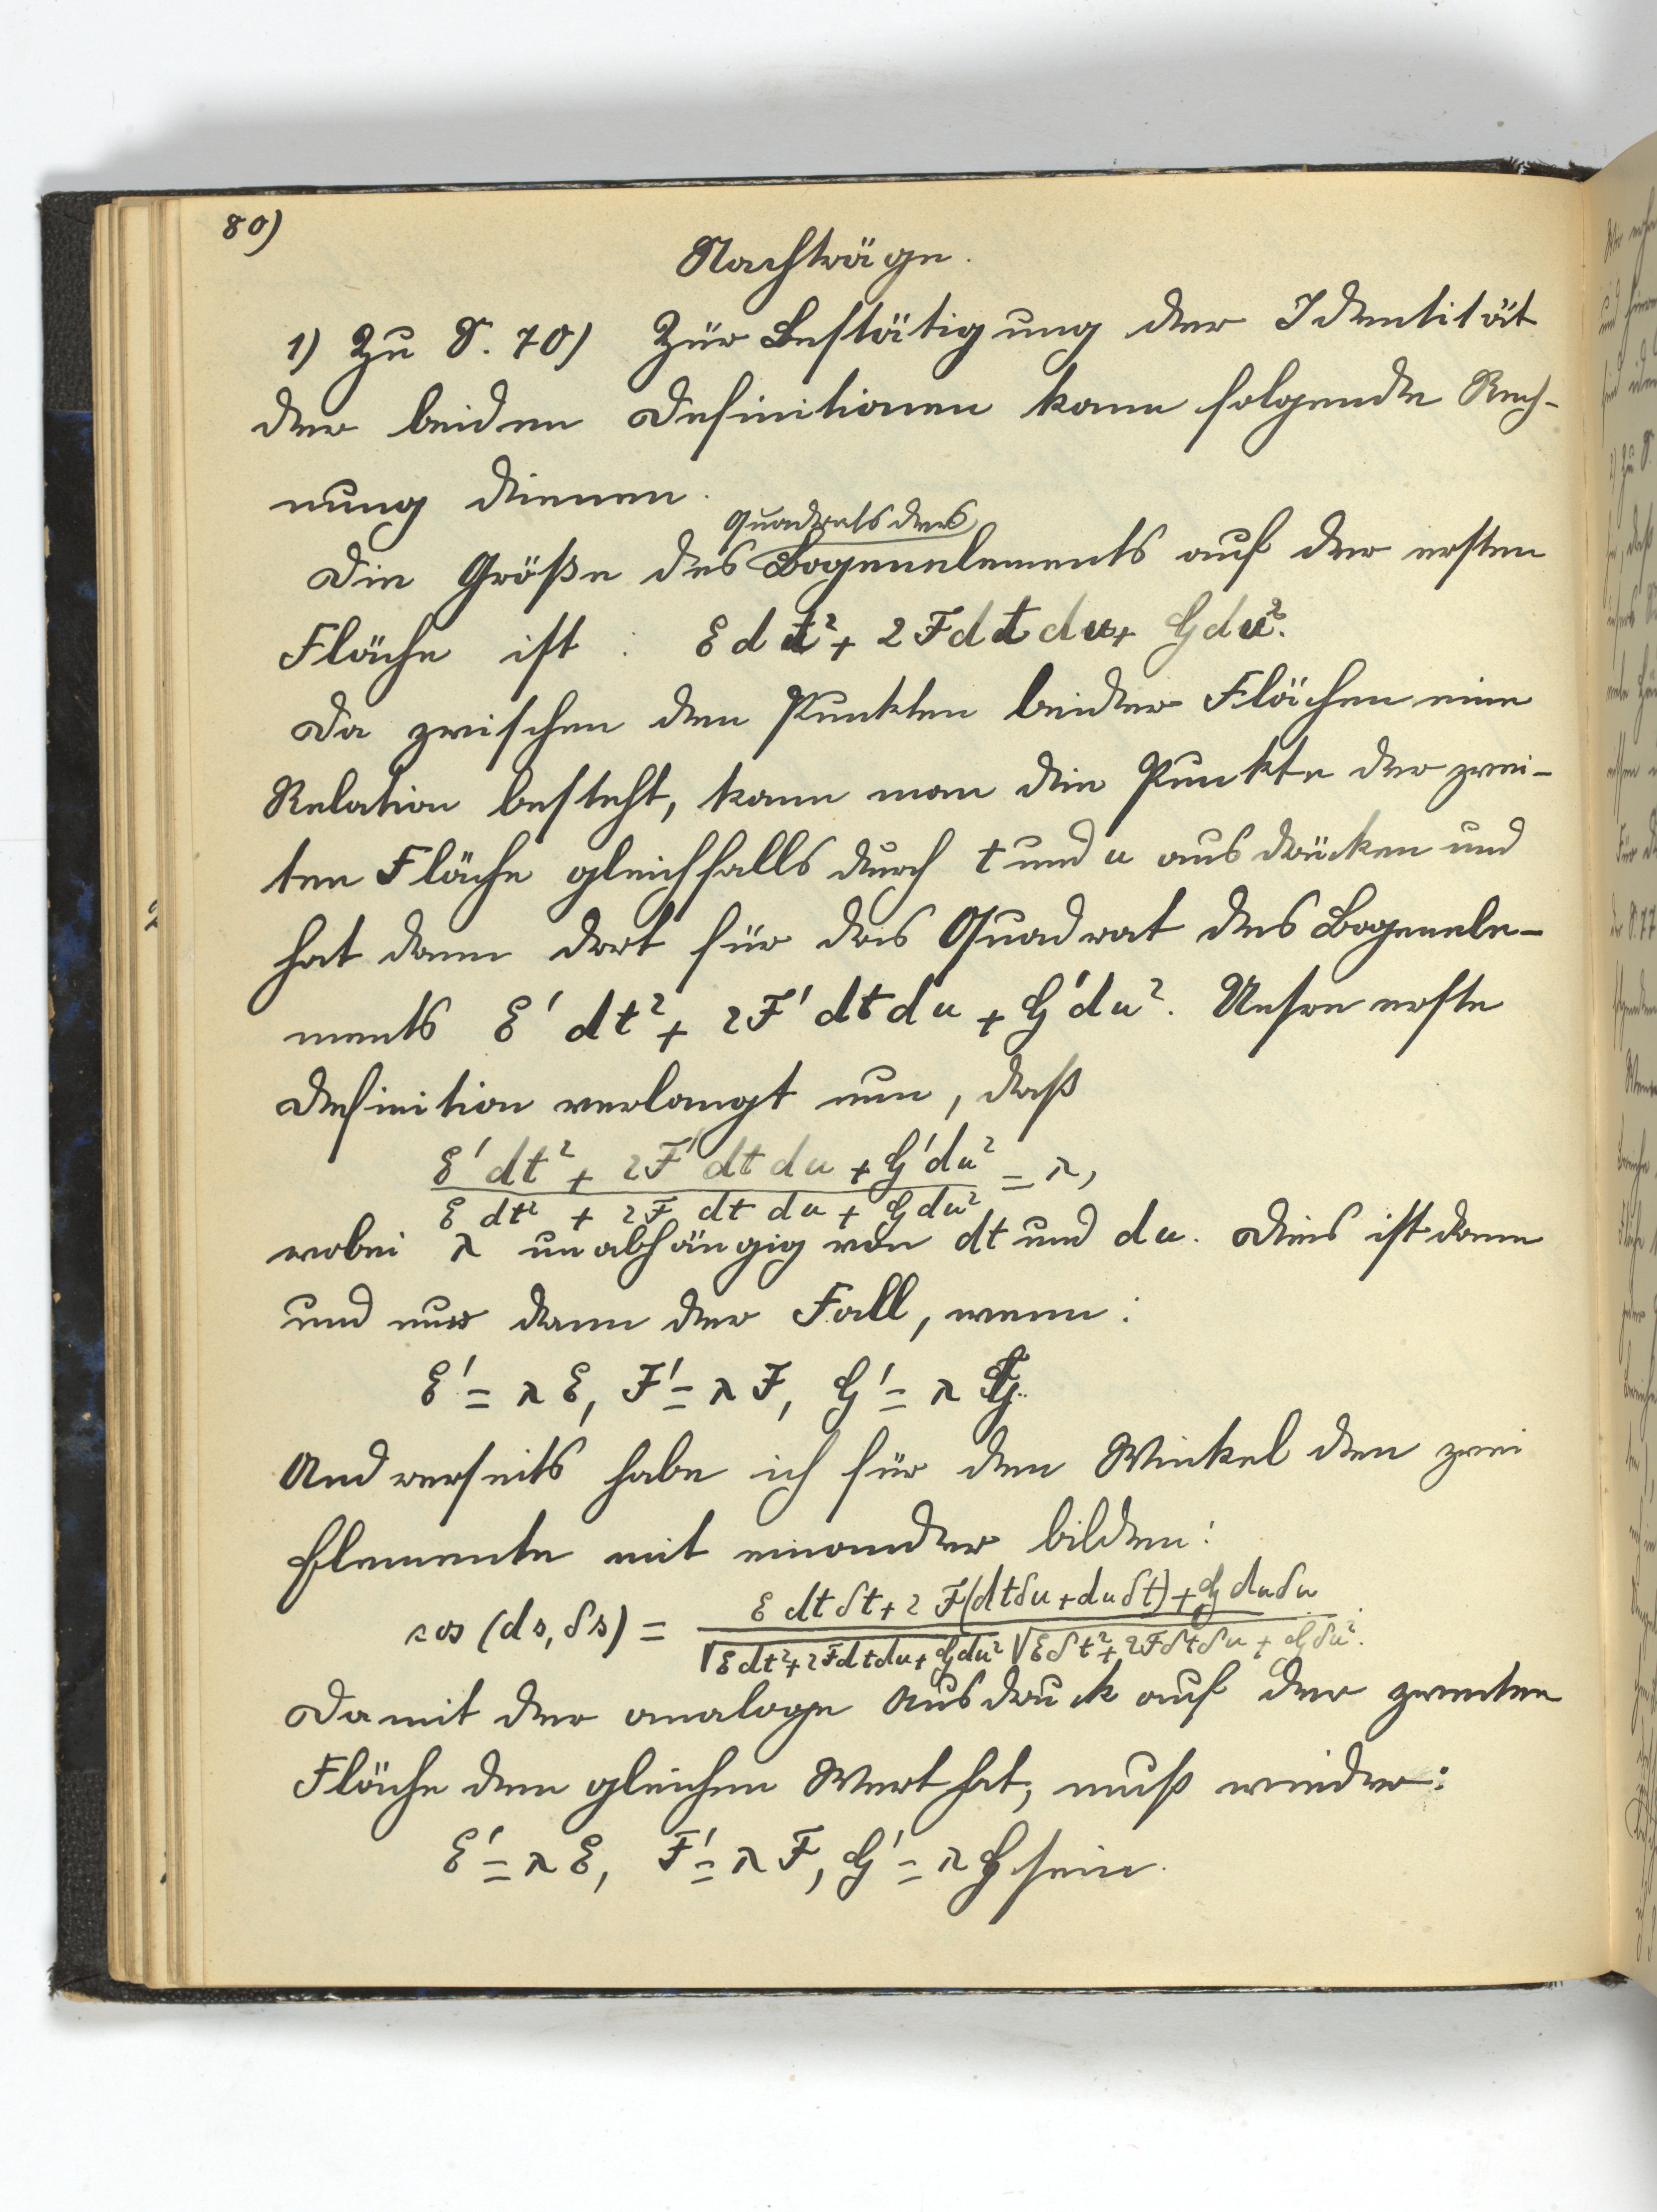 80)
Nachträge.
1) Zu S. 70) Zur Bestätigung der Identität
der beiden Definitionen kann folgende Rech-
nung dienen.
Quadrats des
Die Größe des Bogenelements auf der ersten
Fläche ist : E dt² + 2 F dt du + G du².
Da zwischen den Punkten beider Flächen eine
Relation besteht, kann man die Punkte der zwei-
ten Fläche gleichfalls durch t und u ausdrücken und
hat dann dort für das Quadrat des Bogenele-
ments E' dt² + 2F' dt du + G' du². Unsre erste
Definition verlangt nun, daß
E' dt² + 2F' dt du + G' du² = λ,
E dt² + 2F dt du + G du²
wobei λ unabhängig von dt und du. Dies ist dann
und nur dann der Fall, wenn:
E' = λ E, F' = λ F, G' = λ G.
Andrerseits habe ich für den Winkel den zwei
Elemente mit einander bilden:
cos (ds, δs) = E dt δt + 2 F (dt δu + du δt) + G du δu
√E dt² + 2F dt du + G du² √E δt² + 2F δt δu + G δu².
Damit der analoge Ausdruck auf der zweiten
Fläche den gleichen Wert hat, muß wieder:
E' = λ E, F' = λ F, G' = λ G sein.